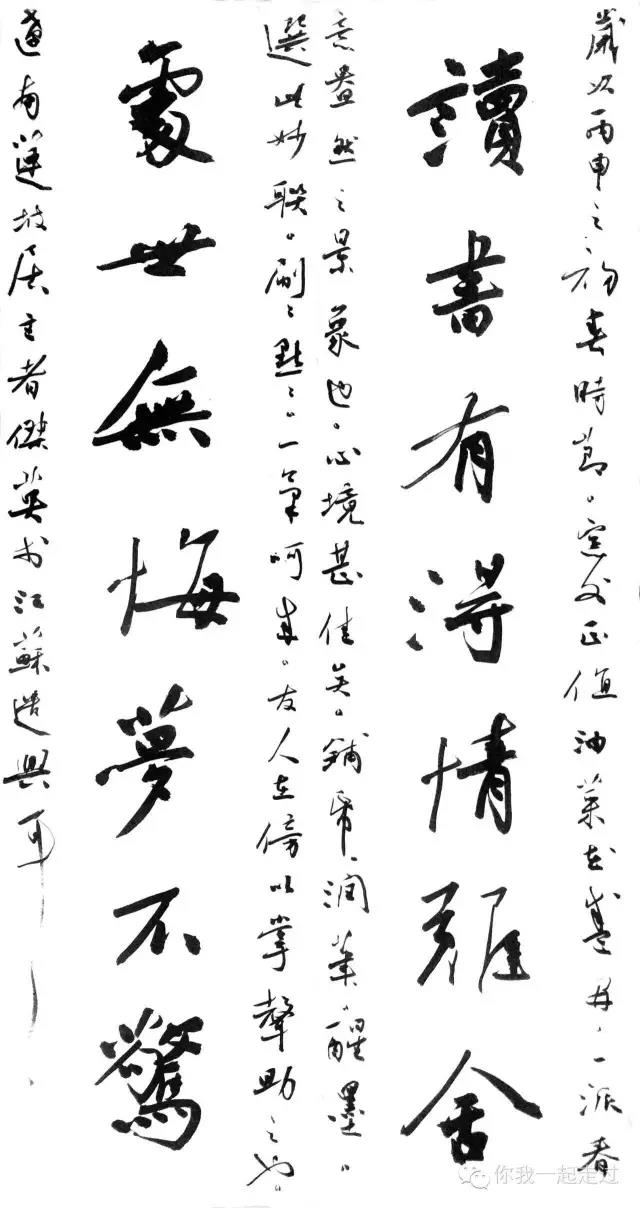 歲次丙申之初春時節。窓外正值油菜花盛開，一派春
讀書有得情難舍
意盎然之景象也。心境甚佳矣。鋪紙、潤筆、醒墨。
選此妙聯。刷々點々。一氣呵成。友人在傍以掌聲助之也。
處世無悔夢不驚
南蓮坡居主者傑英於江蘇遣興耳
你我一起走过